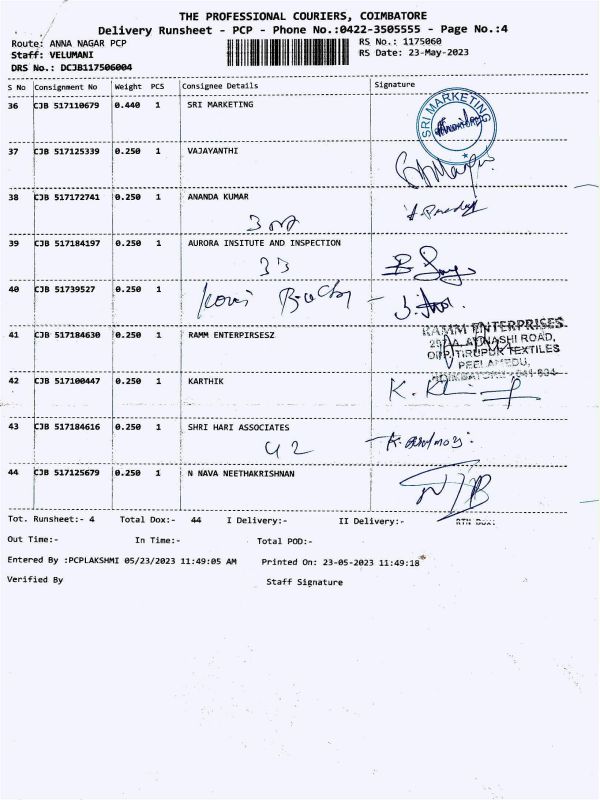 THE PROFESSIONAL COURIERS, COIMBATORE
Delivery Runsheet - PCP - Phone No.:0422-3505555 - Page No.:4
Route: ANNA NAGAR PCP RS No.: 1175060
Staff: VELUMANI RS Date: 23-May-2023
DRS No.: DCJB117506004
S No Consignment No Weight PCS Consignee Details Signature
36 CJB 517110679 0.440 1 SRI MARKETING
SRI MARKETING
37 CJB 517125339 0.250 1 VAJAYANTHI
38 CJB 517172741 0.250 1 ANANDA KUMAR
39 CJB 517184197 0.250 1 AURORA INSITUTE AND INSPECTION
33
40 CJB 51739527 0.250 1
41 CJB 517184630 0.250 1 RAMM ENTERPIRSESZ
RAMM ENTERPRISES
AVINASHI ROAD,
OPP. TIRUPUR TEXTILES
PEELAMEDU,
42 CJB 517100447 0.250 1 KARTHIK
43 CJB 517184616 0.250 1 SHRI HARI ASSOCIATES
42
44 CJB 517125679 0.250 1 N NAVA NEETHAKRISHNAN
Tot. Runsheet:- 4 Total Dox:- 44 I Delivery:- II Delivery:- RTN Dox:
Out Time:- In Time:- Total POD:-
Entered By :PCPLAKSHMI 05/23/2023 11:49:05 AM Printed On: 23-05-2023 11:49:18
Verified By Staff Signature